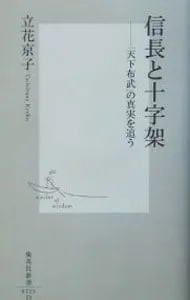 信長と十字架
――「天下布武」の真実を追う
立花京子
Tachibana Kyoko
集英社新書